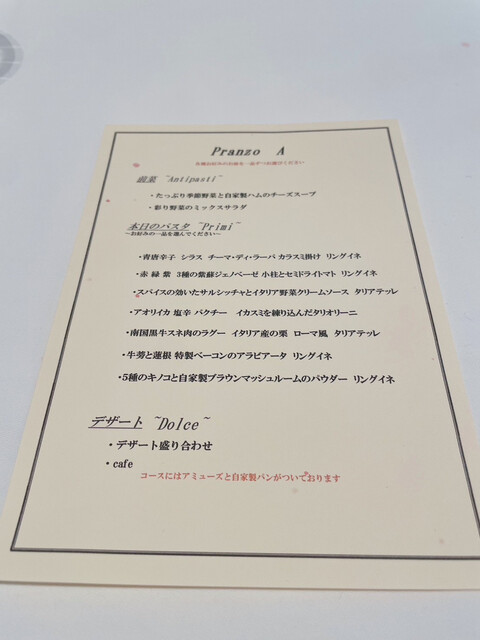 Pranzo A
各種お好みのお皿を一品ずつお選びください
前菜 ~Antipasti~
・たっぷり季節野菜と自家製ハムのチーズスープ
・彩り野菜のミックスサラダ
本日のパスタ ~Primi~
~お好みの一品を選んでください~
・青唐辛子 シラス チーマ・ディ・ラーパ カラスミ掛け リングイネ
・赤 緑 紫 3種の紫蘇ジェノベーゼ 小柱とセミドライトマト リングイネ
・スパイスの効いたサルシッチャとイタリア野菜クリームソース タリアテッレ
・アオリイカ 塩辛 パクチー イカスミを練り込んだタリオリーニ
・南国黒牛スネ肉のラグー イタリア産の栗 ローマ風 タリアテッレ
・牛蒡と蓮根 特製ベーコンのアラビアータ リングイネ
・5種のキノコと自家製ブラウンマッシュルームのパウダー リングイネ
デザート ~Dolce~
・デザート盛り合わせ
・cafe
コースにはアミューズと自家製パンがついております